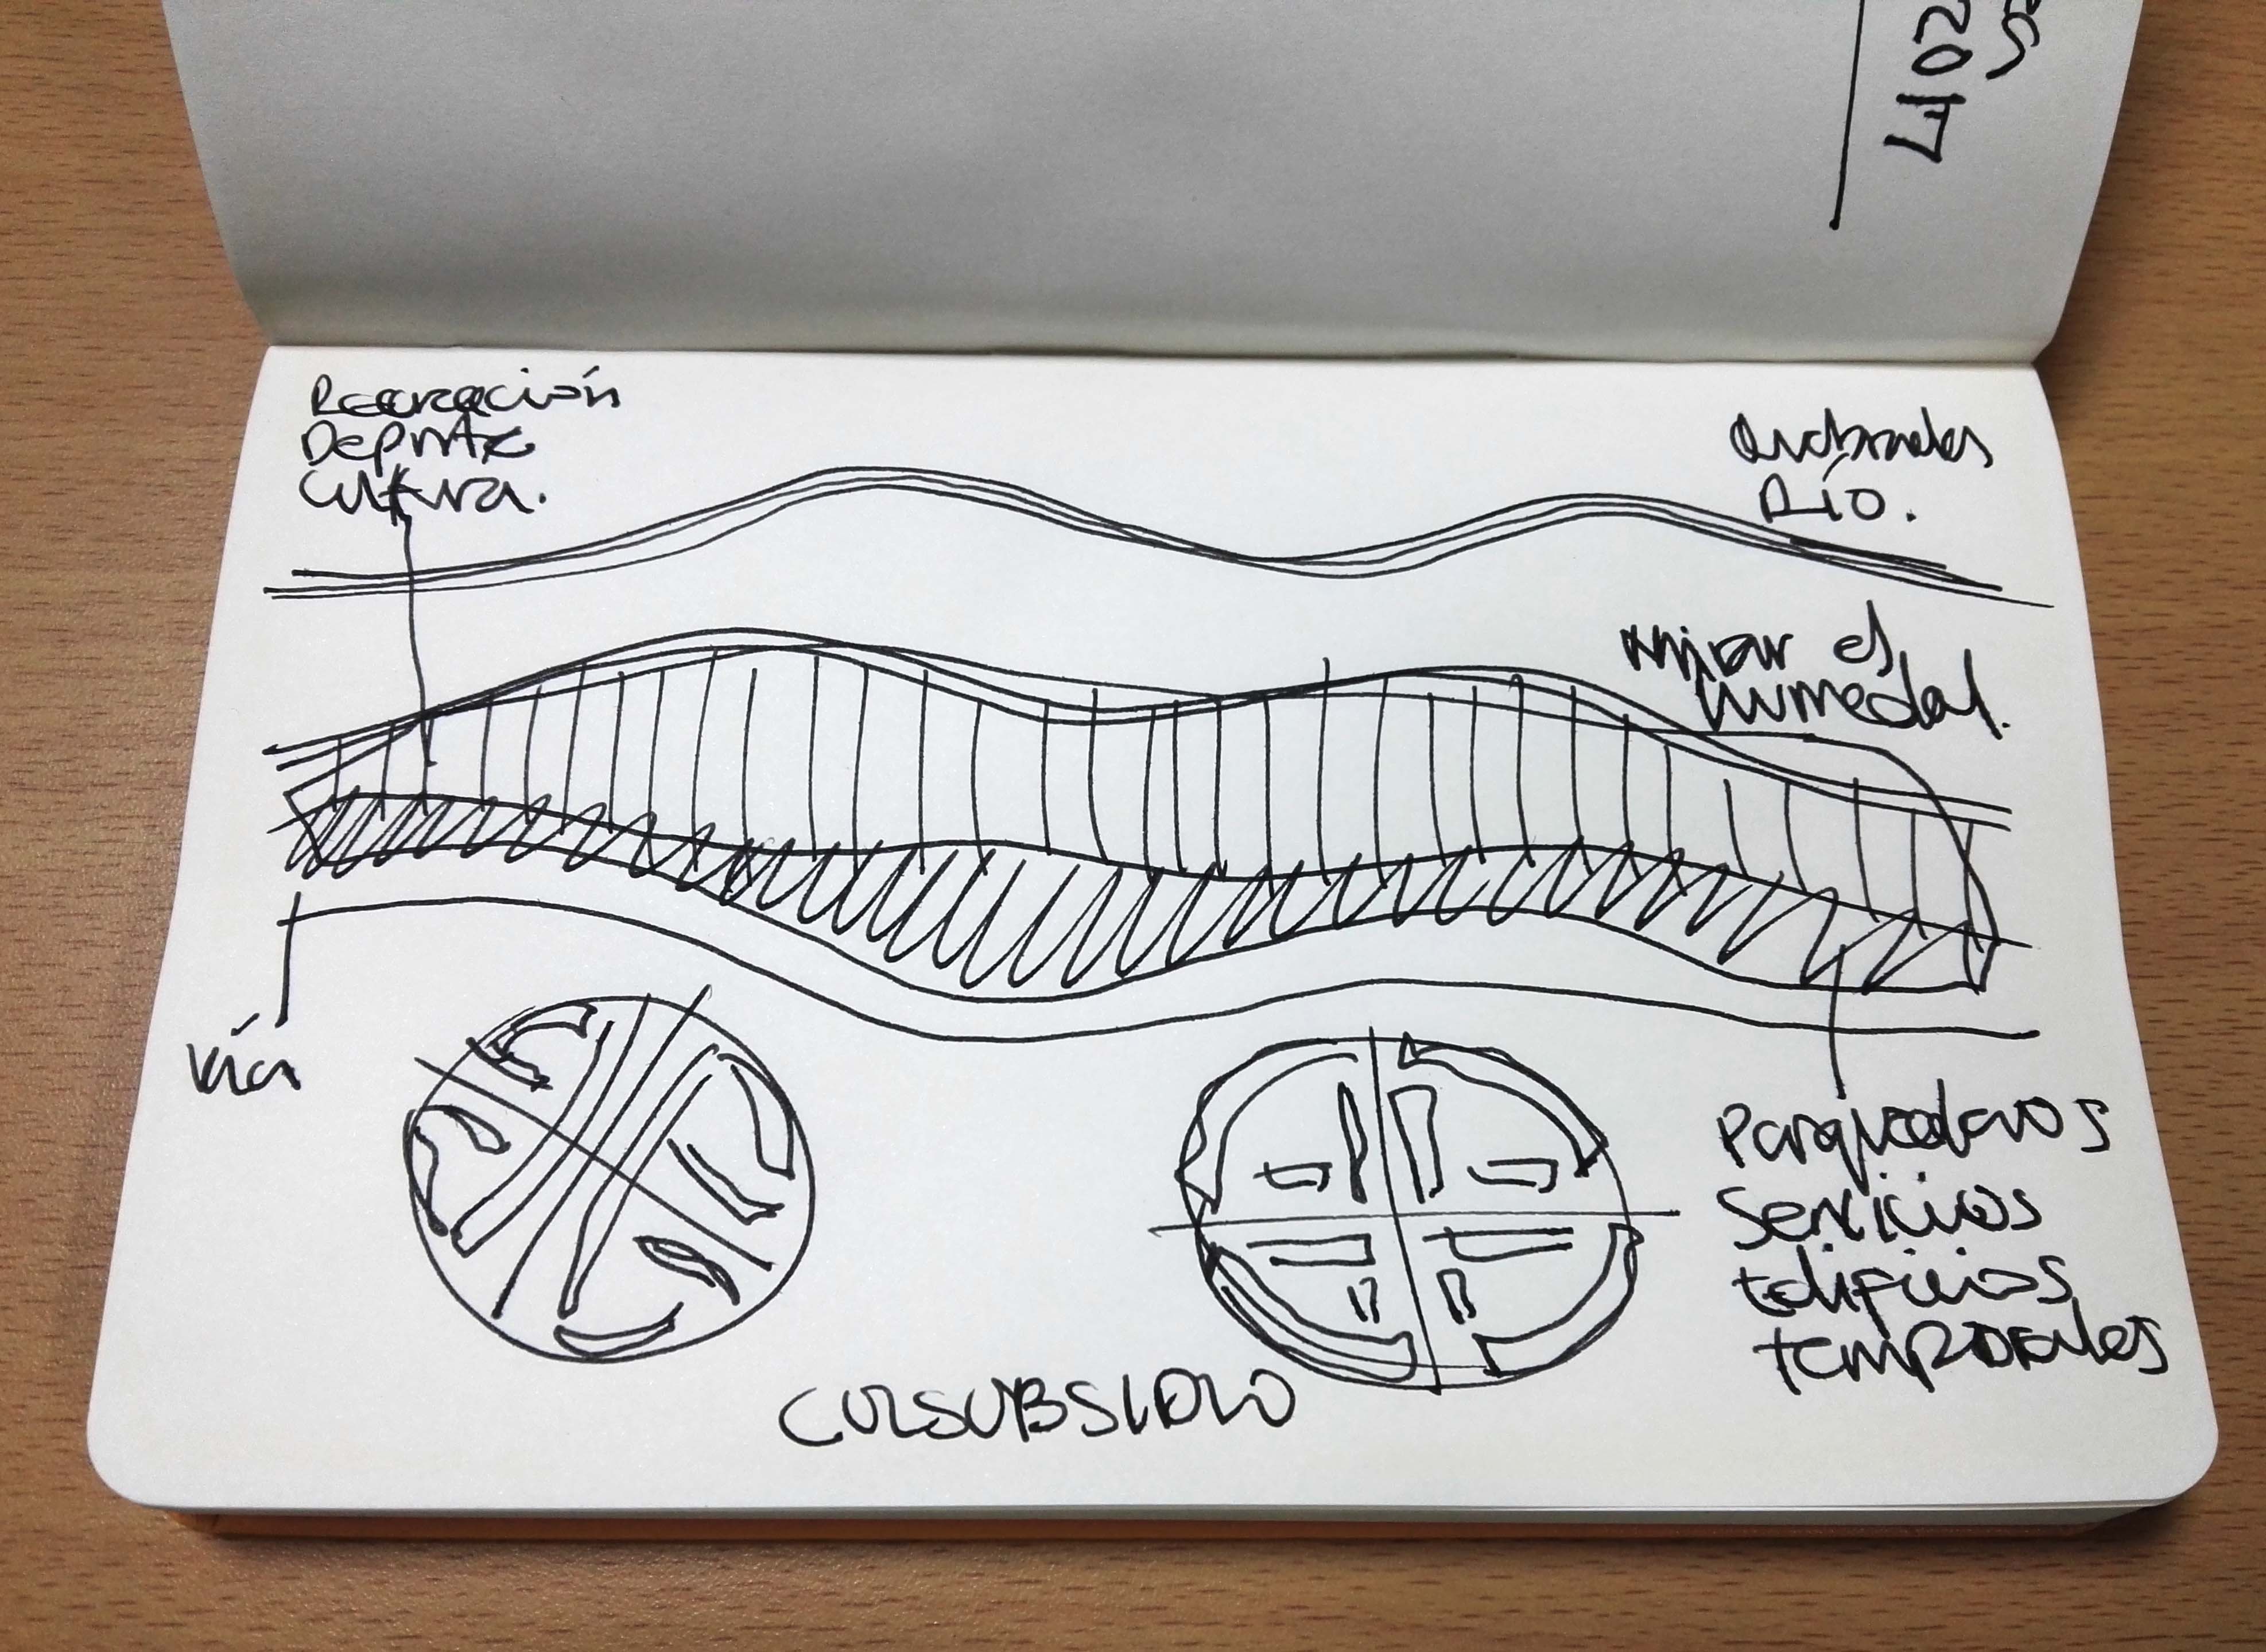 Recreación
Deporte
Cultura.
Quebradas
Río.
mirar el
humedal.
Vía
Parqueaderos
Servicios
Edificios
temporales
COLSUBSIDIO